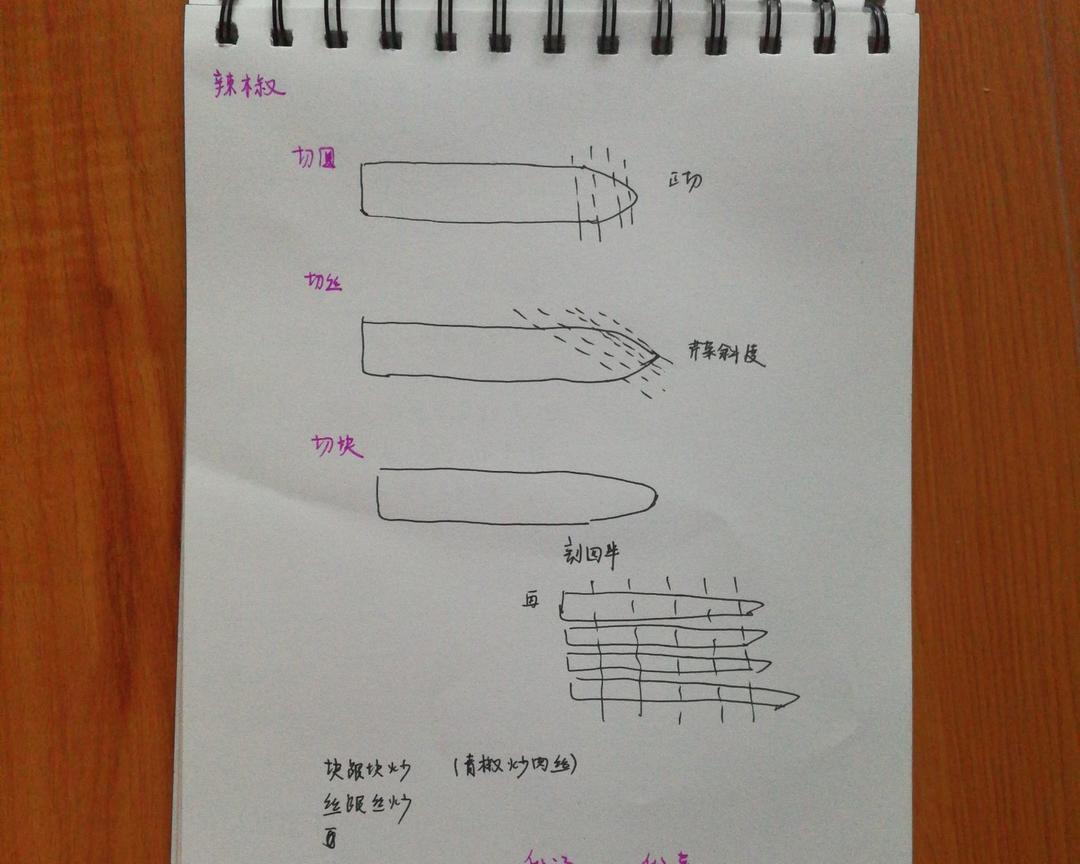 辣椒
切圆
正切
切丝
斜度
切块
剖四半
再
块跟块炒 (青椒炒肉丝)
丝跟丝炒